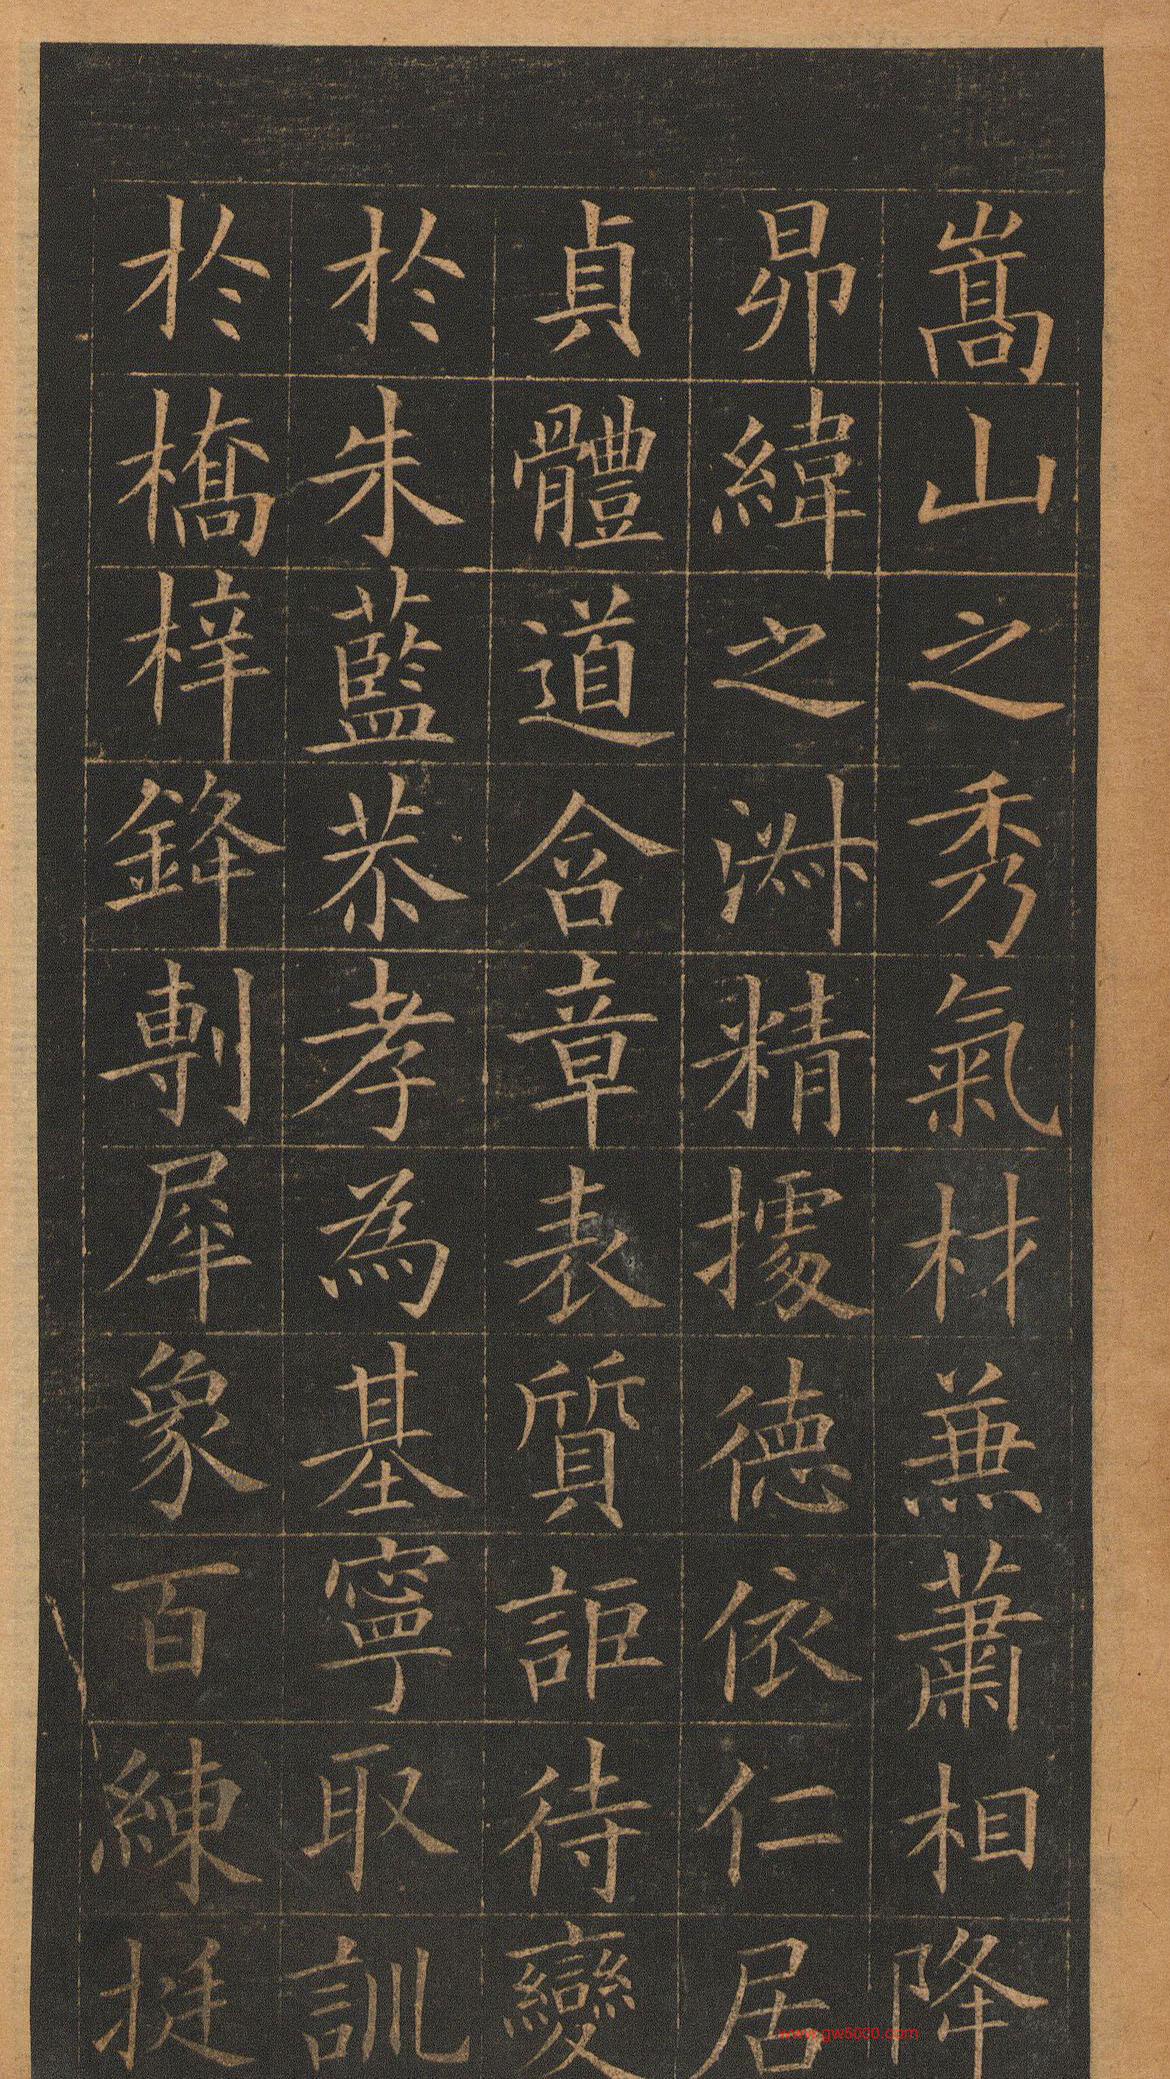 嵩山之秀氣材兼蕭相降
昴緯之淋精據德依仁居
貞體道含章表質詎待變
於朱藍恭孝為基寧取訓
於橋梓鋒剸犀象百練挺
www.gw5000.com